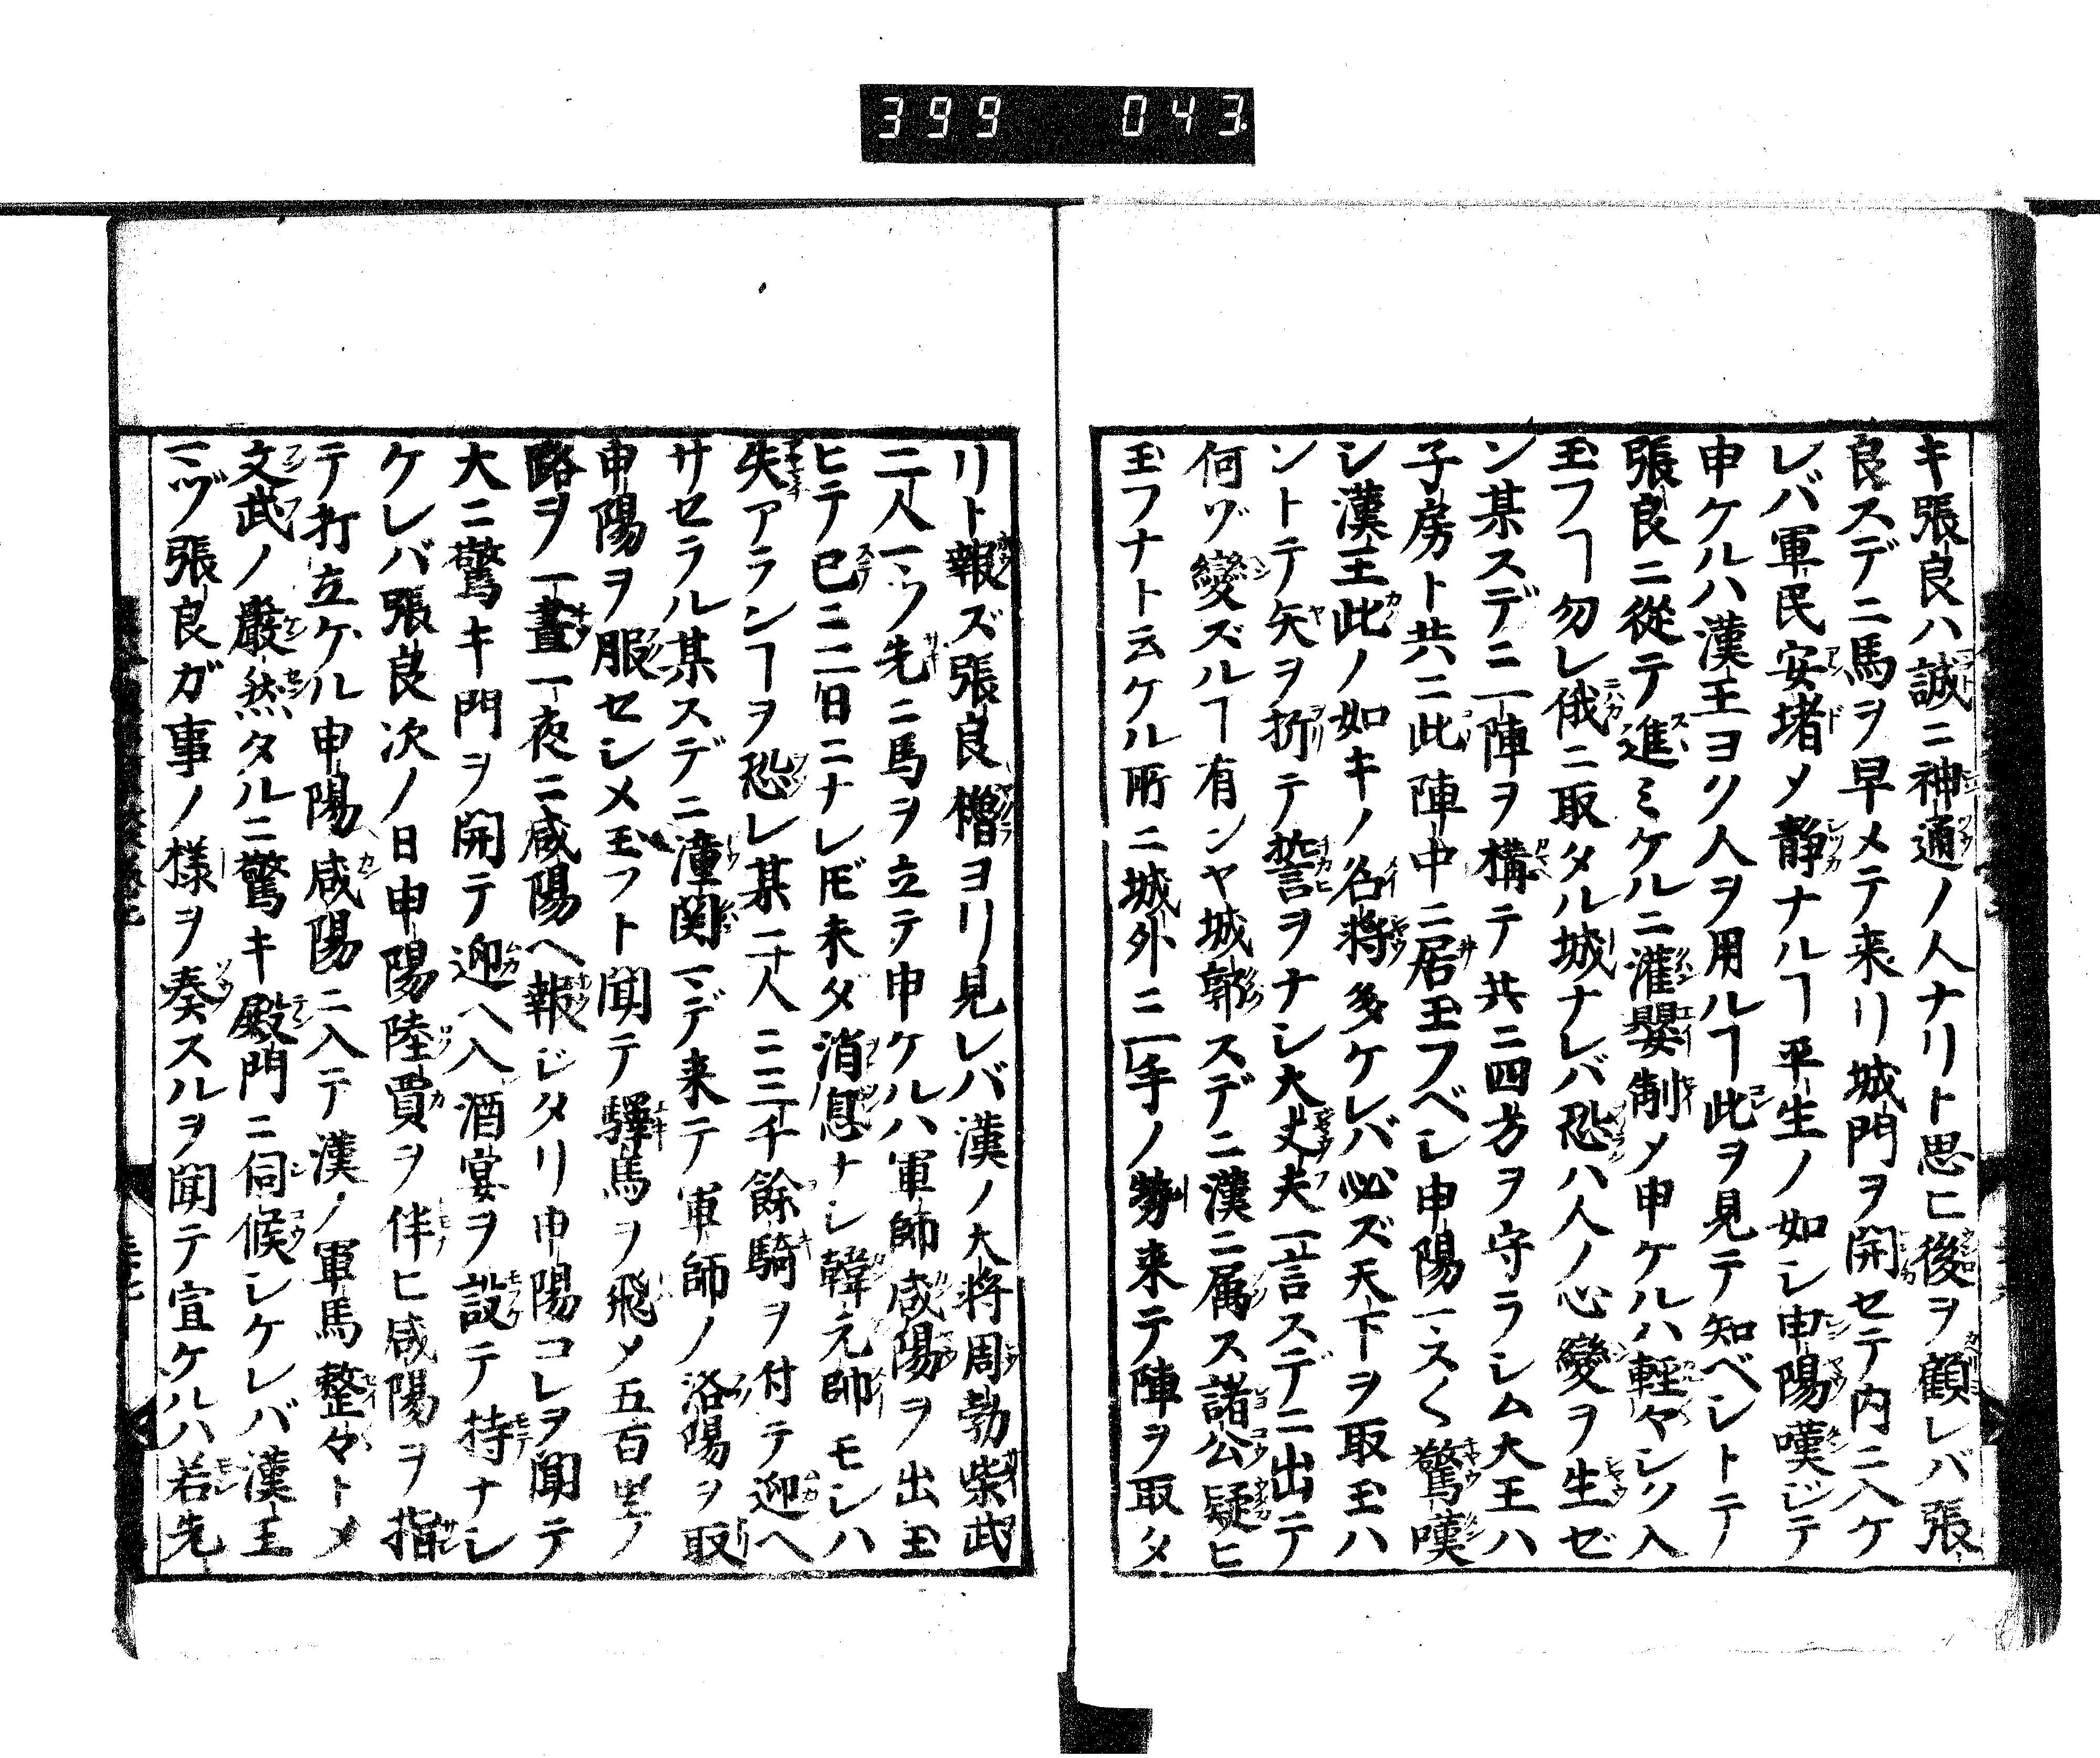 399 043
キ張良ハ誠ニ神通ノ人ナリト思ヒ後ヲ顧レバ張
良スデニ馬ヲ早メテ来リ城門ヲ開セテ内ニ入ケ
レバ軍民安堵メ静ナルヿ平生ノ如シ申陽嘆ジテ
申ケルハ漢王ヨク人ヲ用ルヿ此ヲ見テ知ベシトテ
張良ニ從テ進ミケルニ灌嬰制メ申ケルハ輕々シク入
玉フヿ勿レ俄ニ取タル城ナレバ恐ハ人ノ心變ヲ生ゼ
ン某スデニ一陣ヲ構テ共ニ四方ヲ守ラシム大王ハ
子房ト共ニ此陣中ニ居玉フベシ申陽マスく驚嘆
シ漢王此ノ如キノ名將多ケレバ必ズ天下ヲ取玉ハ
ントテ矢ヲ折テ誓ヲナシ大丈夫一言スデニ出テ
何ゾ變ズルヿ有ンヤ城郭スデニ漢ニ属ス諸公疑ヒ
玉フナト云ケル所ニ城外ニ一手ノ勢来テ陣ヲ取タ
リト報ズ張良櫓ヨリ見レバ漢ノ大将周勃柴武
二人マヅ先ニ馬ヲ立テ申ケルハ軍師咸陽ヲ出玉
ヒテ已ニ二日ニナレ𪜈未ダ消息ナシ韓元帥モシハ
失アランヿヲ恐レ某二人ニ三千餘騎ヲ付テ迎ヘ
サセラル某スデニ潼関マデ来テ軍師ノ洛陽ヲ取
申陽ヲ服セシメ玉フト聞テ驛馬ヲ飛メ五百里ノ
路ヲ一晝一夜ニ咸陽ヘ報ジタリ申陽コレヲ聞テ
大ニ驚キ門ヲ開テ迎ヘ入酒宴ヲ設テ持ナシ
ケレバ張良次ノ日申陽陸賈ヲ伴ヒ咸陽ヲ指
テ打立ケル申陽咸陽ニ入テ漢ノ軍馬整々トメ
文武ノ嚴然タルニ驚キ殿門ニ伺候シケレバ漢王
マヅ張良ガ事ノ様ヲ奏スルヲ聞テ宣ケルハ若先